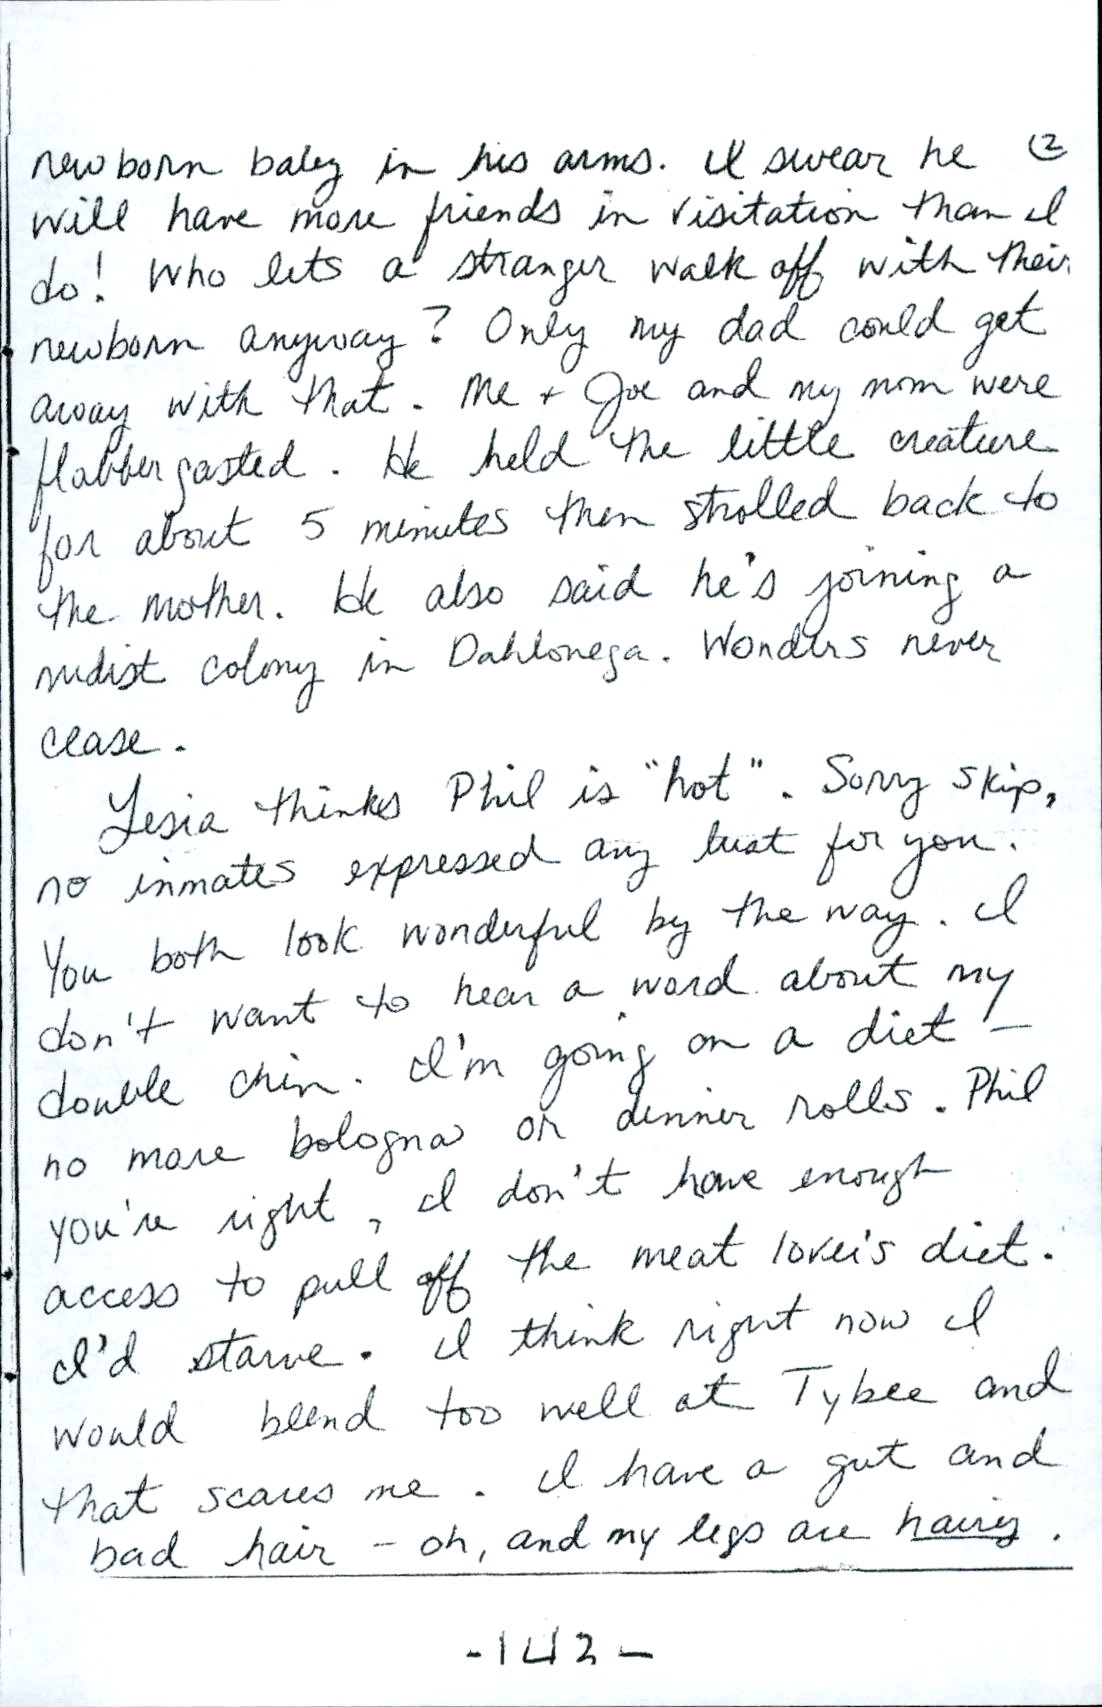 newborn baby in his arms. I swear he ②
will have more friends in visitation than I
do! Who lets a stranger walk off with their
newborn anyway? Only my dad could get
away with that. Me + Joe and my mom were
flabbergasted. He held the little creature
for about 5 minutes then strolled back to
the mother. He also said he's joining a
nudist colony in Dahlonega. Wonders never
cease.
Lesia thinks Phil is "hot". Sorry Skip,
no inmates expressed any lust for you.
You both look wonderful by the way. I
don't want to hear a word about my
double chin. I'm going on a diet –
no more bologna or dinner rolls. Phil
you're right, I don't have enough
access to pull off the meat lover's diet.
I'd starve. I think right now I
would blend too well at Tybee and
that scares me. I have a gut and
bad hair – oh, and my legs are hairy.
-142-